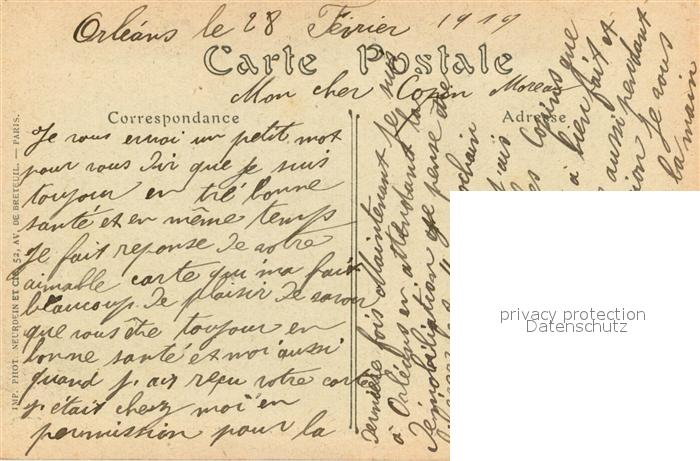 Orléans le 28 Février 1919
Carte Postale
Mon cher Copin Moreau
Correspondance
Adresse
Je vous envoi un petit mot
pour vous dir que je suis
toujour en tré bonne
santé et en même temp
Je fait reponse de votre
aimable carte qui ma fait
beaucoup de plaisir de savoir
que vous être toujour en
bonne santé et moi aussi
quand j, ai reçu votre carte
j, était chez moi en
permission pour la
dernière fois Maintenant je suis
à Orléans en attendant la
demobilisation que pense être
à bien fait et
aussi pendant
Je vous
la main
IMP. PHOT. NEURDEIN ET Cie, 52, AV. DE BRETEUIL. — PARIS.
privacy protection
Datenschutz